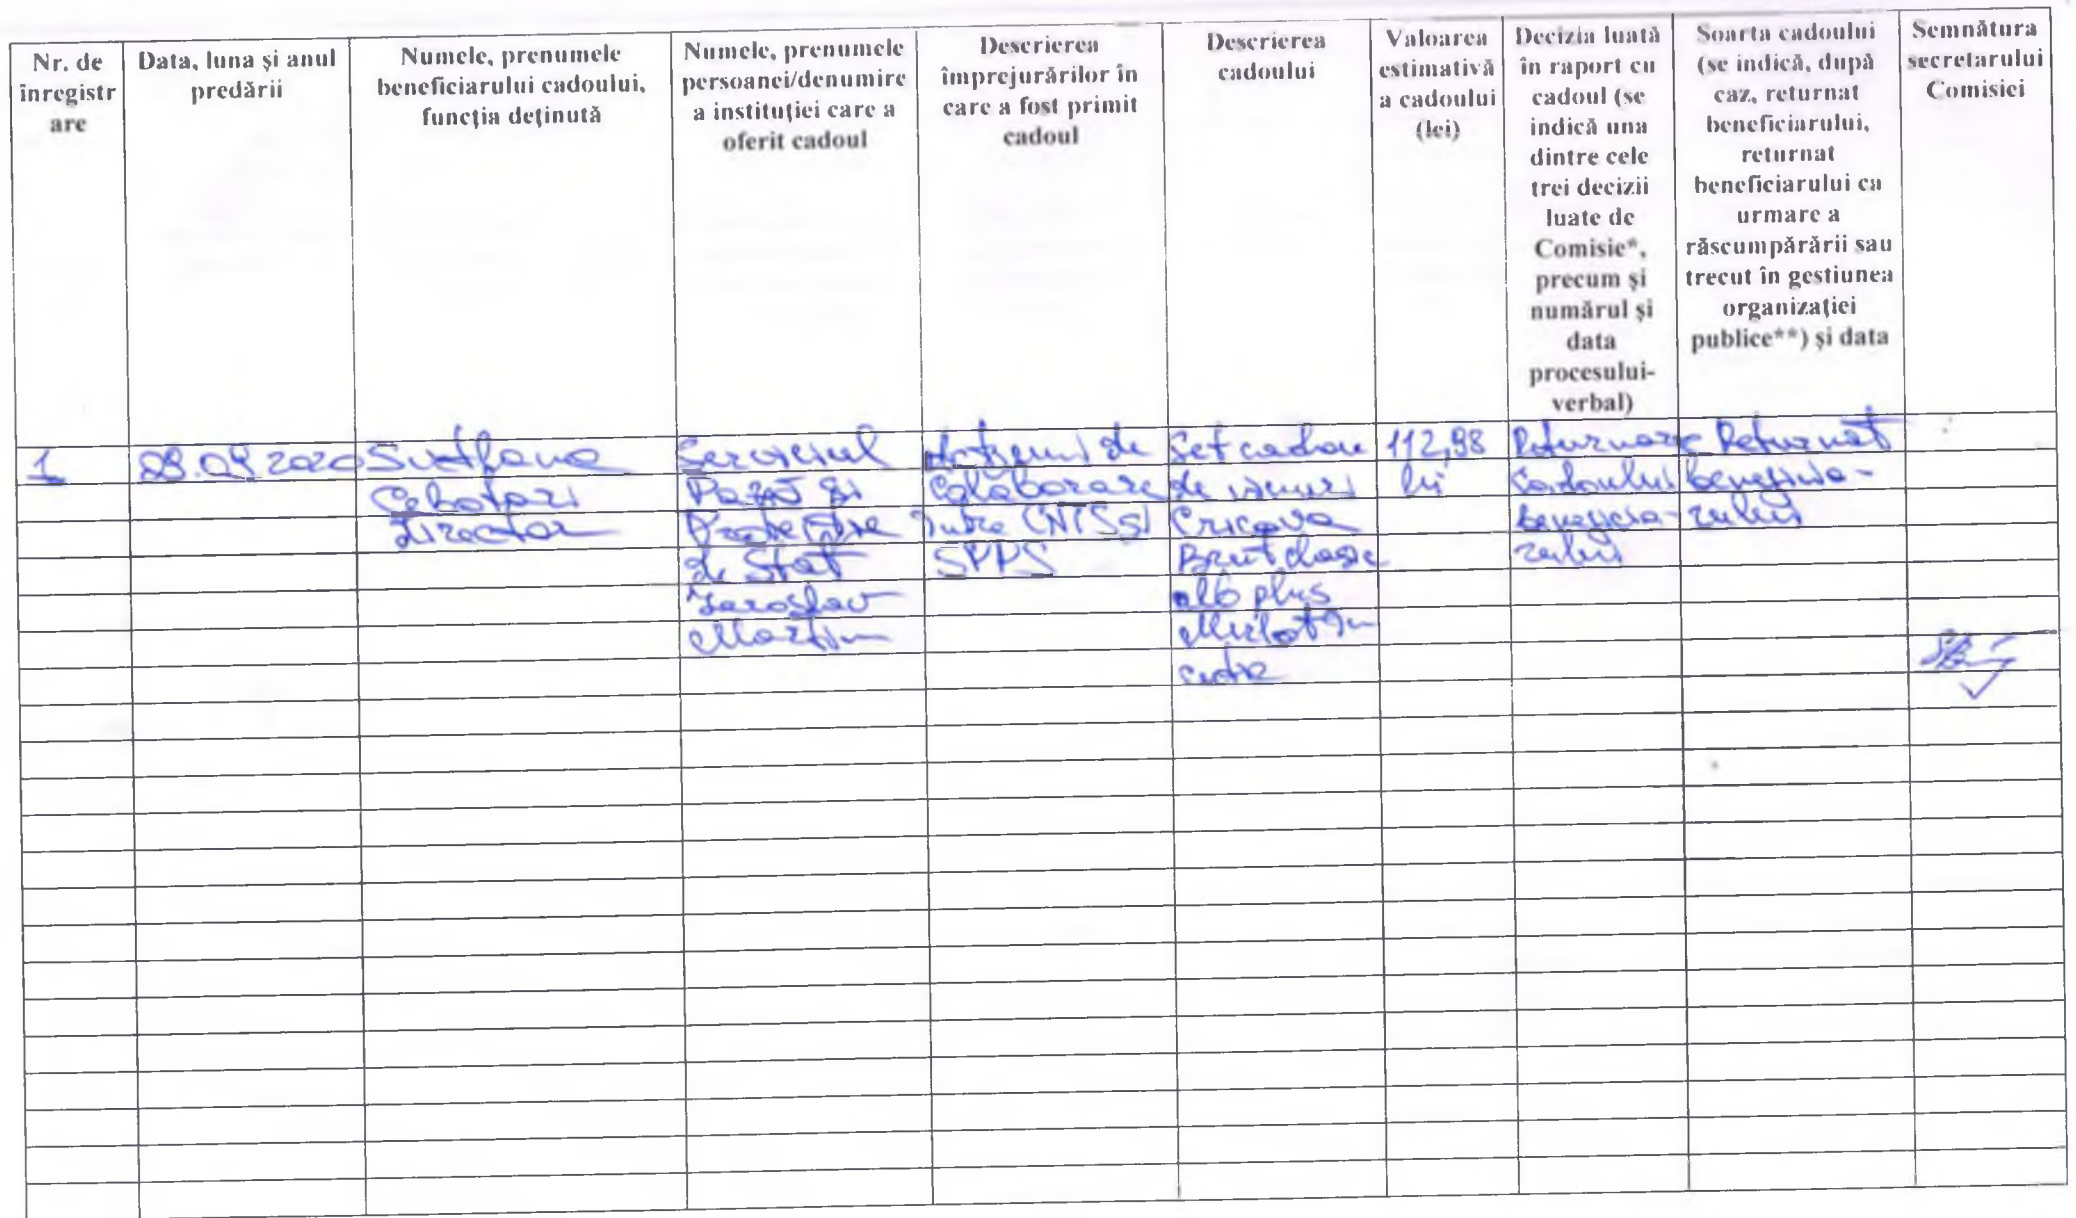 Nr. de
înregistr
are
Data, luna și anul
predării
Numele, prenumele
beneficiarului cadoului,
funcția deținută
Numele, prenumele
persoanei/denumire
a instituției care a
oferit cadoul
Descrierea
împrejurărilor în
care a fost primit
cadoul
Descrierea
cadoului
Valoarea
estimativă
a cadoului
(lei)
Decizia luată
în raport cu
cadoul (se
indică una
dintre cele
trei decizii
luate de
Comisie*,
precum și
numărul și
data
procesului-
verbal)
Soarta cadoului
(se indică, după
caz, returnat
beneficiarului,
returnat
beneficiarului ca
urmare a
răscumpărării sau
trecut în gestiunea
organizației
publice**) și data
Semnătura
secretarului
Comisiei
1
2020
Svetlana
Cebotari
Director
Serviciul
Pază și
Protecție
de Stat
Iaroslav
Martin
de
colaborare
între CNTSși
SPPS
Set cadou
de vinuri
Cricova
Brut clasic
alb plus
Merlot în
cutie
112,98
lei
Returnare
cadoului
beneficia-
rului
Returnat
beneficia-
rului